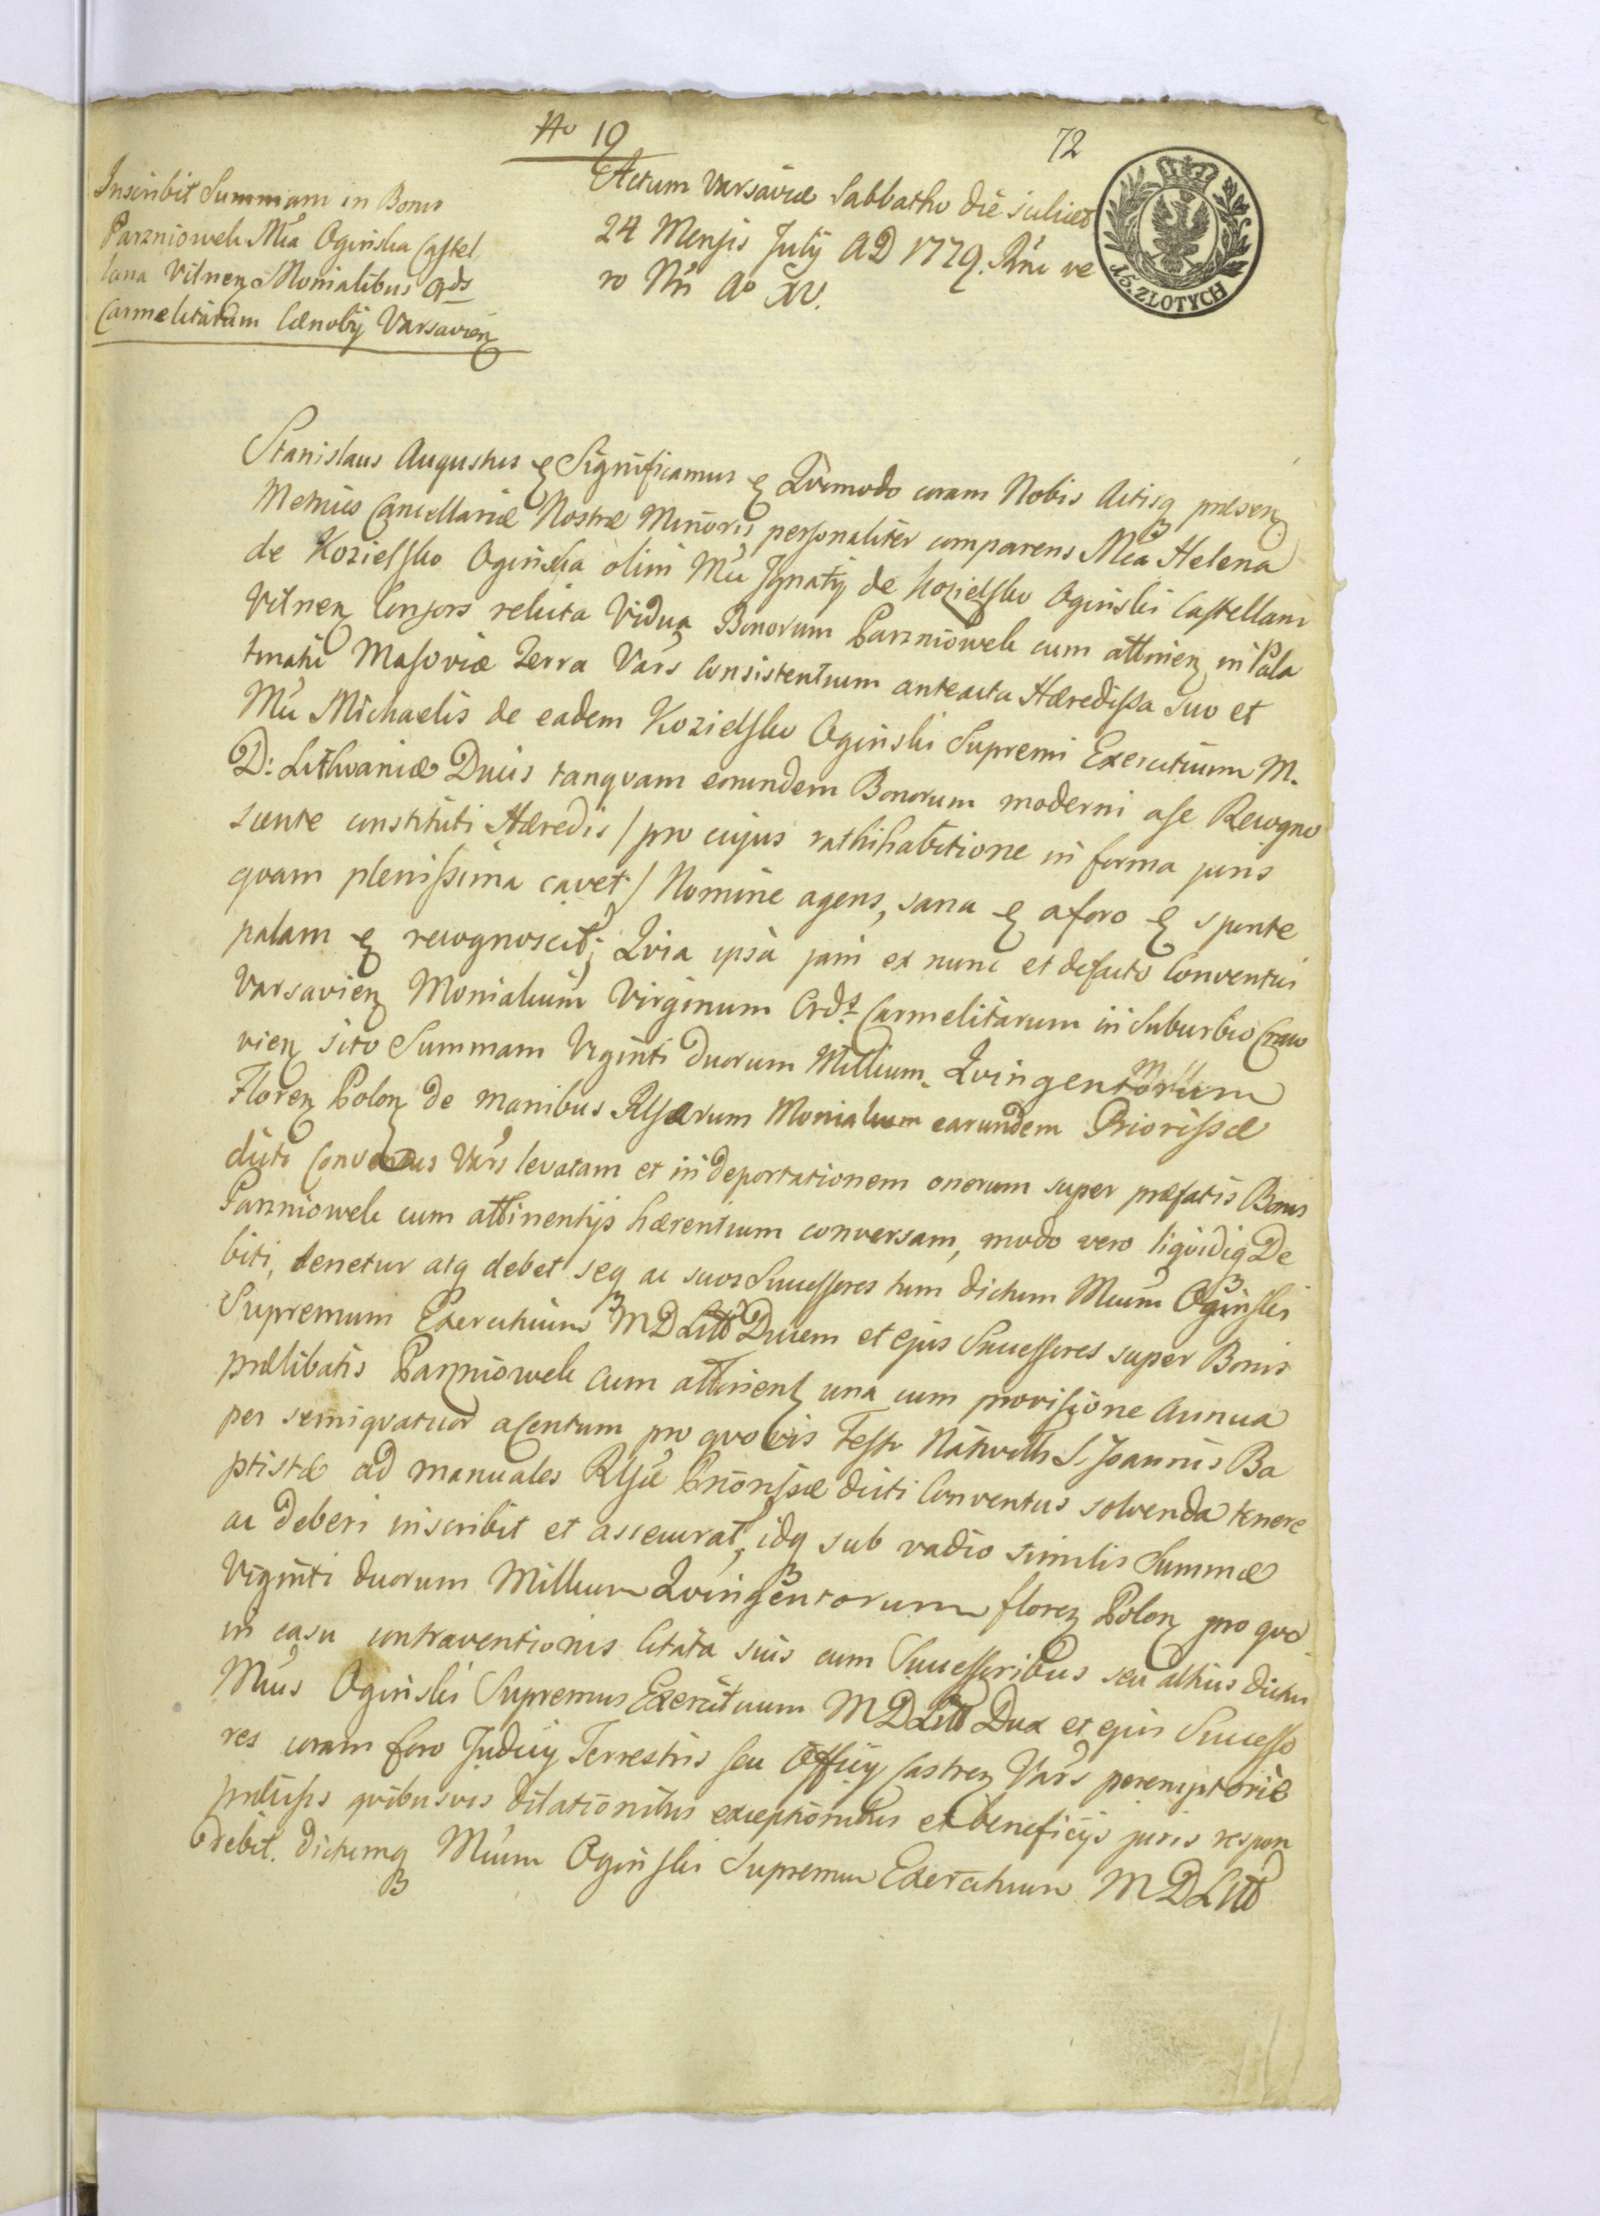 No 10
72
Inscribit Summam in Bonis
Parzniowek Mća Oginska Castel
lana Vilnen Monialibus Ords
Carmelitarum Cænobij Varsavien
Actum Varsaviæ Sabbatho die scilicet
24 Mensis July AD 1779. Rñi ve
ro Nri Ao XV.
15. ZLOTYCH
Stanislaus Augustus & Significamus & Qvomodo coram Nobis Actisq præsen
Metrices Cancellariæ Nostræ Minoris personaliter comparens Mća Helena
de Kozielsko Oginska olim Mći Ignatij de Kozielsko Oginski Castellani
Vilnen Consors relicta Vidua Bonorum Parzniowek cum attinen in Pala
tinatu Masoviæ Terra Vars Consistentium anteacta Hæredissa suo et
Mći Michaelis de eadem Kozielsko Oginski Supremi Exercituum M.
D: Lithvaniæ Ducis tanqvam eorundem Bonorum moderni a se Recogno
scente constituti Hæredis / pro cujus rathihabitione in forma juris
qvam plenissima cavet / Nomine agens, sana & a foro & sponte
palam & recognoscit; Qvia ipsa jam ex nunc et de facto Conventui
Varsavien Monialium Virginum Ords Carmelitarum in Suburbio Craco
vien sito Summam Viginti duorum Millium Qvingentorum
Floren Polon de manibus Rlgsarum Monialium earundem Priorissæ
dicti Conventus Vars levatam et in deportationem onerum super præfatis Bonis
Parzniowek cum attinentijs hærentium conversam, modo vero liqvidiq De
biti, tenetur atq debet seq ac suos Successores tum dictum Mcum Oginski
Supremum Exercituum MDLitt Ducem et ejus Successores super Bonis
prælibatis Parzniowek cum attinent una cum provisione annua
per semiqvatuor a Centum pro qvovis Festo Nativitts S. Joannis Ba
ptistæ ad manuales Rlgsæ Priorissæ dicti Conventus solvenda tenere
ac deberi inscribit et assecurat, idq sub vadio similis Summæ
Viginti duorum Millium Qvingentorum floren Polon pro qvo
in casu contraventionis Citata suis cum Successoribus seu altius dictus
Mcus Oginski Supremus Exercituum MDLitt Dux et ejus Successo
res coram foro Judicij Terrestris seu Officij Castren Vars peremptorie
præcisis qvibusvis dilationibus exceptionibus et beneficijs juris respon
debit. dictumq Mcum Oginski Supremum Exercituum MDLitt